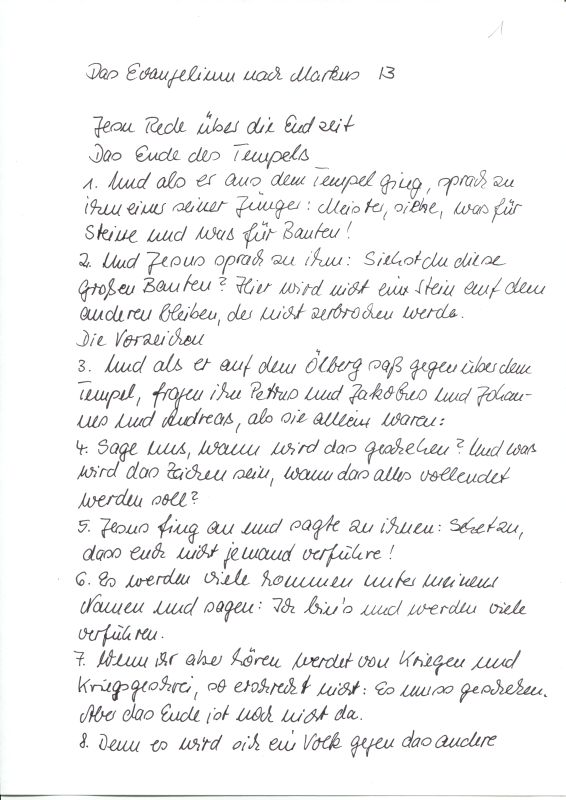 1
Das Evangelium nach Markus 13
Jesu Rede über die Endzeit
Das Ende des Tempels
1. Und als er aus dem Tempel ging, sprach zu
ihm einer seiner Jünger: Meister, siehe, was für
Steine und was für Bauten!
2. Und Jesus sprach zu ihm: Siehst du diese
großen Bauten? Hier wird nicht ein Stein auf dem
anderen bleiben, der nicht zerbrochen werde.
Die Vorzeichen
3. Und als er auf dem Ölberg saß gegenüber dem
Tempel, fragen ihn Petrus und Jakobus und Johan-
nes und Andreas, als sie allein waren:
4. Sage uns, wann wird das geschehen? Und was
wird das Zeichen sein, wann das alles vollendet
werden soll?
5. Jesus fing an und sagte zu ihnen: Seht zu,
dass euch nicht jemand verführe!
6. Es werden viele kommen unter meinem
Namen und sagen: Ich bin's und werden viele
verführen.
7. Wenn ihr aber hören werdet von Kriegen und
Kriegsgeschrei, so erschreckt nicht: Es muss geschehen.
Aber das Ende ist noch nicht da.
8. Denn es wird sich ein Volk gegen das andere